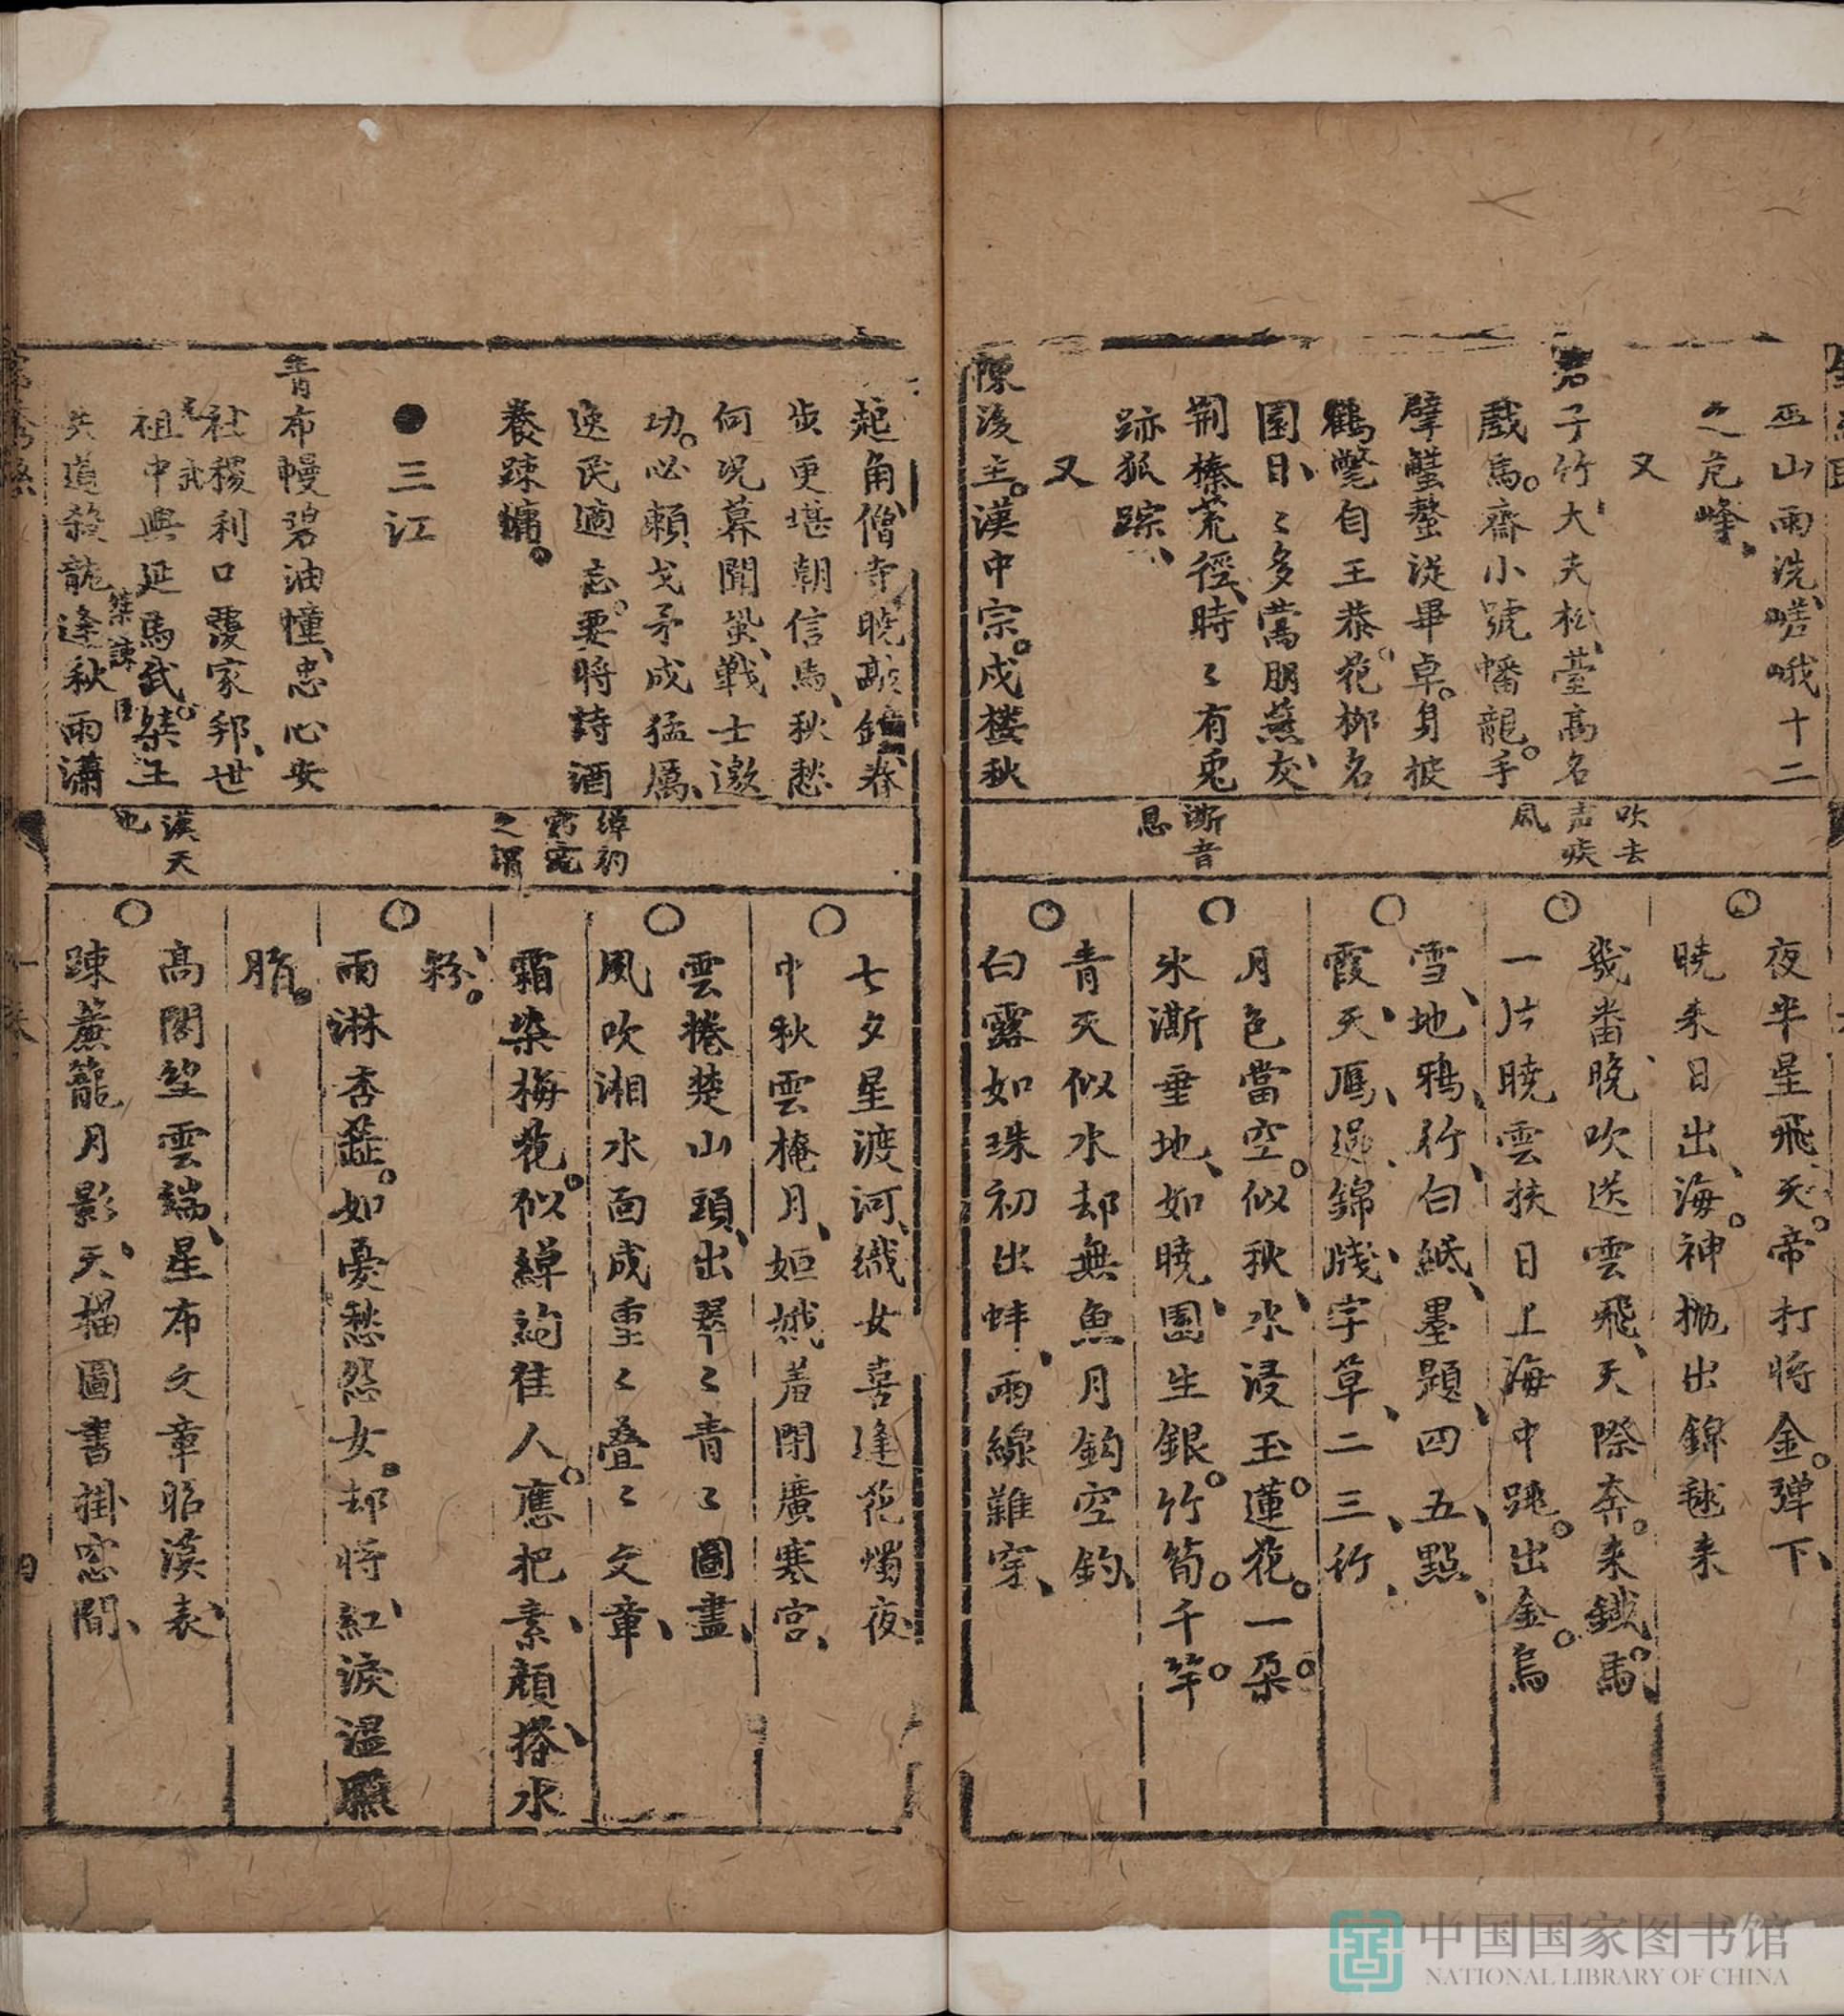 巫山雨洗嵯峨十二
之危峰
又
君子竹大夫松臺高名
戲馬齋小號蟠龍手
擘蟹螯從畢卓身披
鶴氅自王恭花栁名
園日〻多鶯朋燕友
荆榛荒徑時〻有兎
跡狐踪
又
陳後主漢中宗戍楼秋
吹去
声疾
風
澌音
思
夜半星飛天帝打將金弹下
曉来日出海神抛出錦毬来
幾畨晚吹送雲飛天際奔来鐡馬
一片曉雲扶日上海中跳出金烏
雪地鴉行白紙墨題四五點
霞天鴈過錦牋字草二三行
月色當空似秋水浸玉蓮花一朶
氷澌垂地如曉園生銀竹筍千竿
青天似水却無魚月鈎空釣
白露如珠初出蚌雨線難穿
起角僧寺曉敲鐘春
歩更堪朝信馬秋愁
何况暮聞蛩戰士邀
功必頼戈矛成猛厲
逸民適志要將詩酒
養踈慵
●三江
青布幔碧油幢忠心安
社稷利口覆家邦世
祖中興延馬武桀王
失道殺龍逄秋雨瀟
光武
桀諌臣
綽約
窈窕
之謂
漢天
也
七夕星渡河織女喜逢花燭夜
中秋雲掩月姮娥羞閉廣寒宫
雲捲楚山頭出翠〻青〻圖畫
風吹湘水面成重〻叠〻文章
霜染梅花似綽約佳人應把素顔搽水
粉
雨淋杏蕋如憂愁怨女却将紅淚温臙
脂
高閣望雲端星布文章昭漢表
踈簾籠月影天描圖書掛窓間
中国国家图书馆
NATIONAL LIBRARY OF CHINA